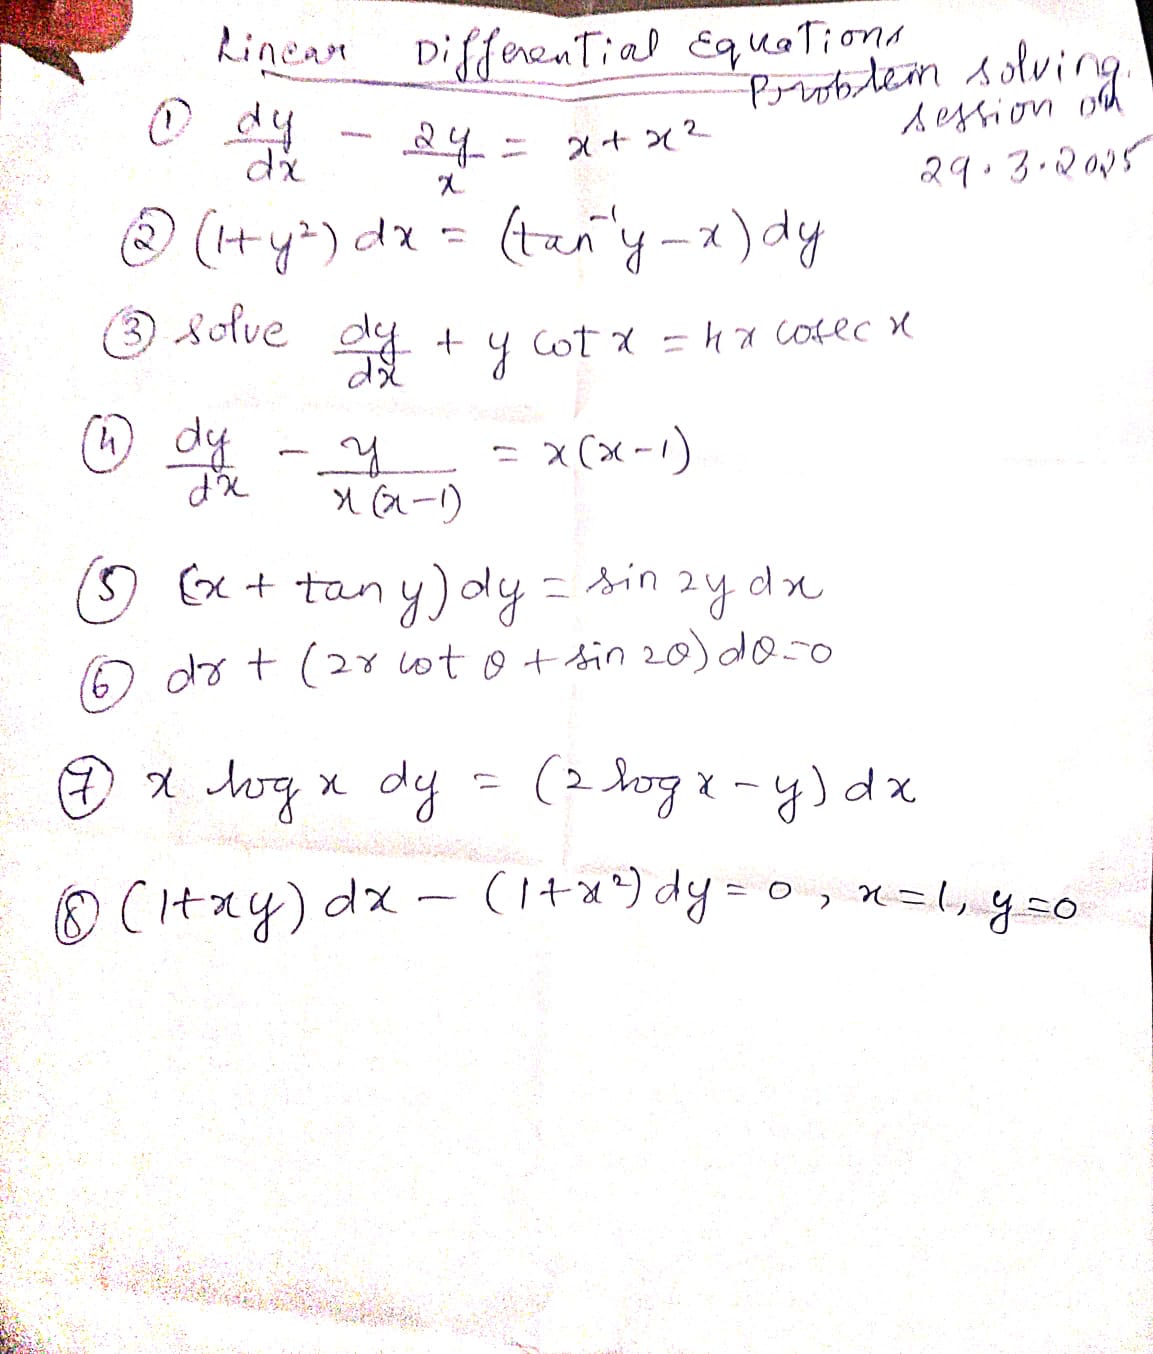 Linear Differential Equations
Problem solving
session on
29.3.2025
① dy/dx - 2y/x = x + x²
② (1+y²) dx = (tan⁻¹y - x) dy
③ solve dy/dx + y cot x = 4x cosec x
④ dy/dx - y/x(x-1) = x(x-1)
⑤ (x + tan y) dy = sin 2y dx
⑥ dr + (2r cot θ + sin 2θ) dθ = 0
⑦ x log x dy = (2 log x - y) dx
⑧ (1+xy) dx - (1+x²) dy = 0, x=1, y=0